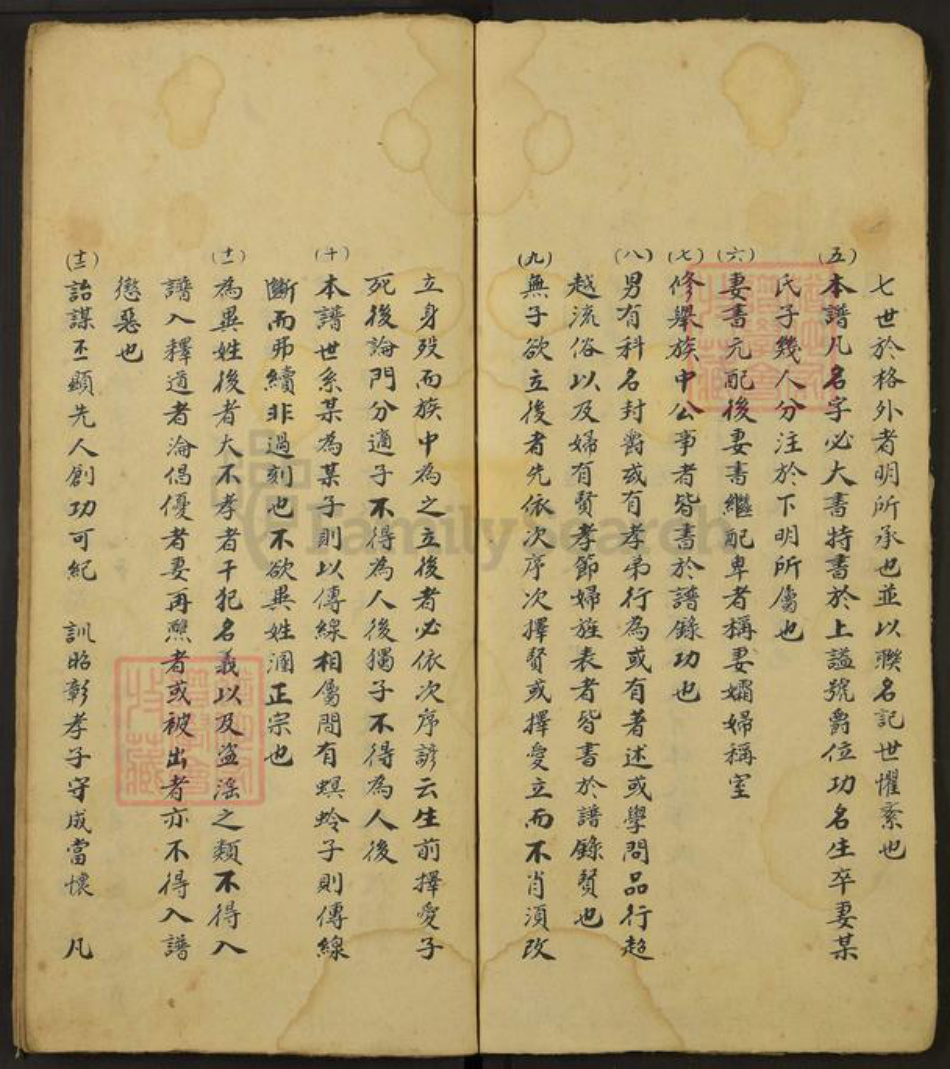 七世於格外者明所承也並以聯名記世懼紊也
（五）本譜凡名字必大書特書於上諡號爵位功名生卒妻某
氏子幾人分注於下明所屬也
（六）妻書元配後妻書繼配卑者稱妻孀婦稱室
（七）修舉族中公事者皆書於譜錄功也
（八）男有科名封爵或有孝弟行為或有著述或學問品行超
越流俗以及婦有賢孝節婦旌表者皆書於譜錄賢也
（九）無子欲立後者先依次序次擇賢或擇愛立而不肖須改
立身歿而族中為之立後者必依次序諺云生前擇愛子
死後論門分適子不得為人後獨子不得為人後
（十）本譜世系某為某子則以傳線相屬間有螟蛉子則傳線
斷而弗續非過刻也不欲異姓溷正宗也
（十一）為異姓後者大不孝者干犯名義以及盜淫之類不得入
譜入釋道者淪倡優者妻再醮者或被出者亦不得入譜
懲惡也
（十二）詒謀丕顯先人創功可紀 訓昭彰孝子守成當懷 凡
FamilySearch